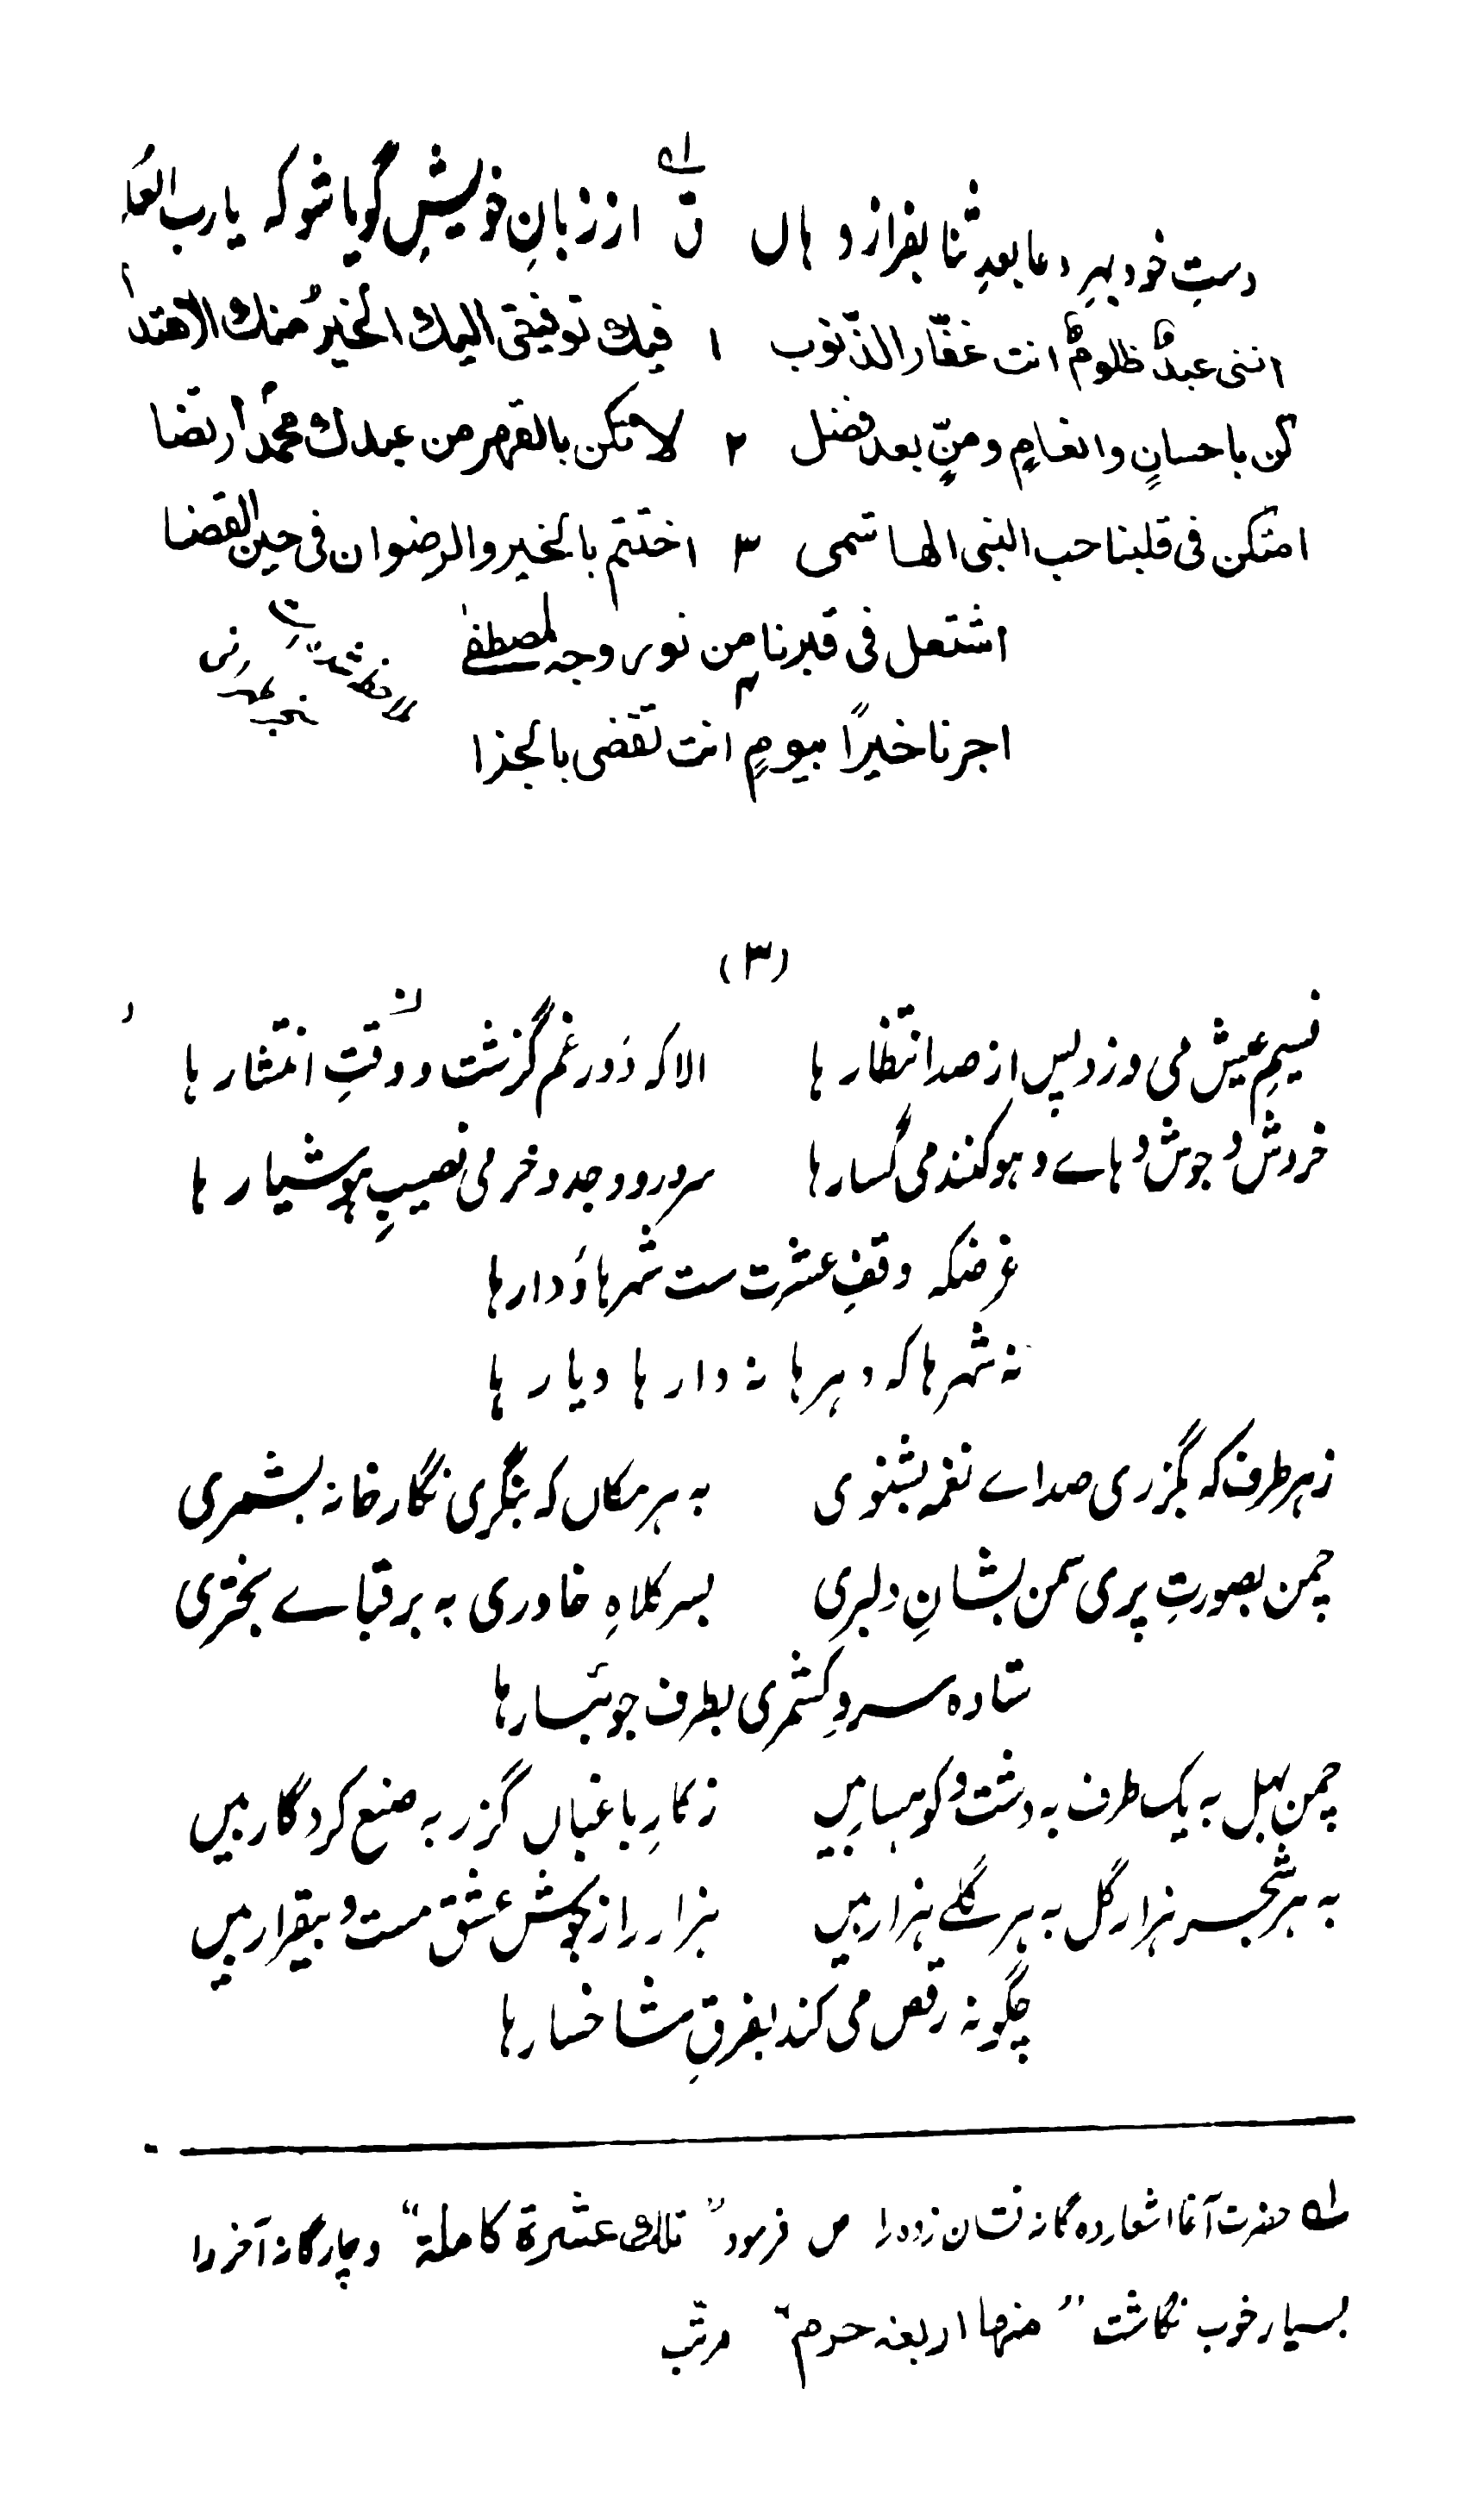 دستِ خود بہرِ دعا بعدِ ثنا بفراز و ہاں ق از زبانِ خویشِ گویا شو کہ یا رب العلا
اننی عبدٌ ظلومٌ انت غفّار الذّنوب ۱ فیك توفیقی الیك الخیر منك الاهتدا
کن باحسانٍ وانعامٍ ومنٍّ بعد فضل ۲ لا تکن بالقهر من عبدك محمّد ارتضا
امتکن فی قلبنا حب النبی الهاشمی ۳ اختتم بالخیر والرضوان فی حین القضا
اشتعل فی قبرنا من نور وجه المصطفیٰ
اجرنا خیرًا بیومٍ انت تقضی بالجزا
(۳)
نسیمِ عیش می وزد پس از صد انتظار ہا الا کہ دَورِ غم گزشت و وقتِ انتشار ہا
خروش و جوش و ہاے و ہو کنند می گسار ہا سرور و وجد و خرمی نصیبِ ہوشیار ہا
غرضکہ وقفِ عشرت ست شہرہا و دارہا
نہ شہرہا کہ دہرہا نہ دارہا دیار ہا
زہر طرف کہ بگزری صداے نغمہ بشنوی بہ ہر مکاں کہ بنگری نگارخانہ بشمری
چمن بصورتِ پری سمن بشانِ دلبری بسر کلاہِ خاوری بہ بر قباے بخترؔی
ستادہ سروِ کشمری بطرف جوئبارہا
چمن بہل بہ یک طرف بہ دشت و کوہسار بیں ز کارِ باغباں گزر بہ صنع کردگار بیں
بہ ہر شجر ہزار گل بہ ہر گلے ہزار بیں ہزار را ز جوشش عشق مست و بیقرار بیں
چگونہ رقص می کند بفرقِ شاخسارہا
لہ حضرت آقا اشعار دہ گانہ نشان زدہ را ص فرمود ”تلك عشرة کاملة“ و چارگانہ آخر را
بسیار خوب نگاشت ”منها اربعة حرم“ مرتّب